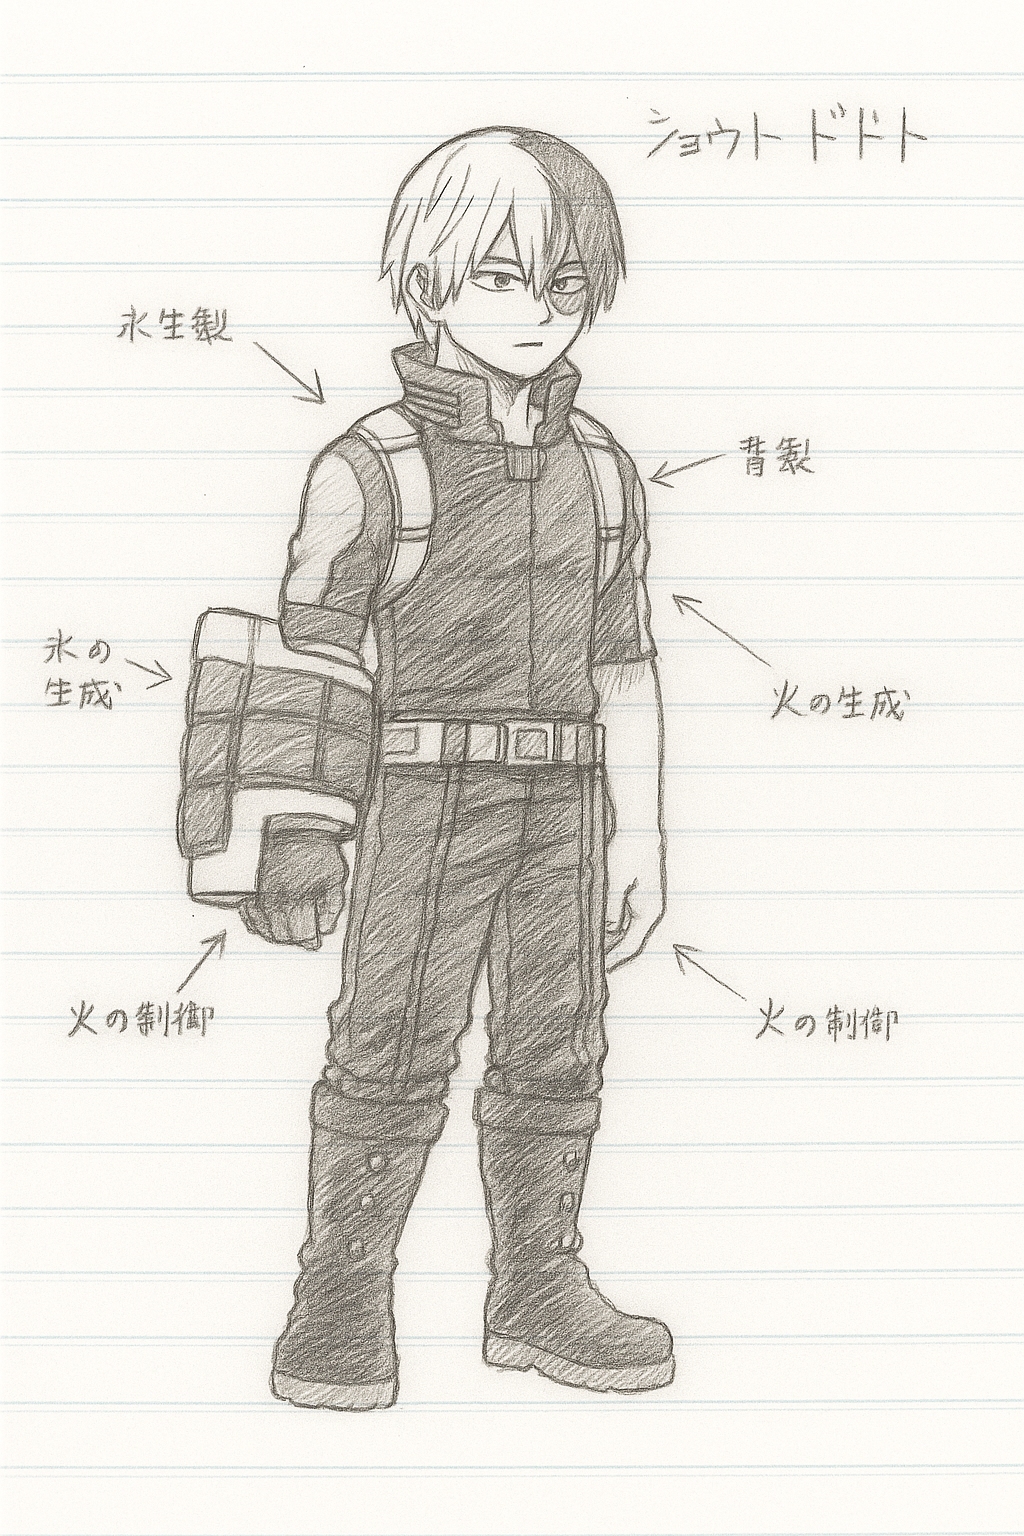 ショウト ドドト
水生製
背製
氷の
生成
火の生成
火の制御
火の制御